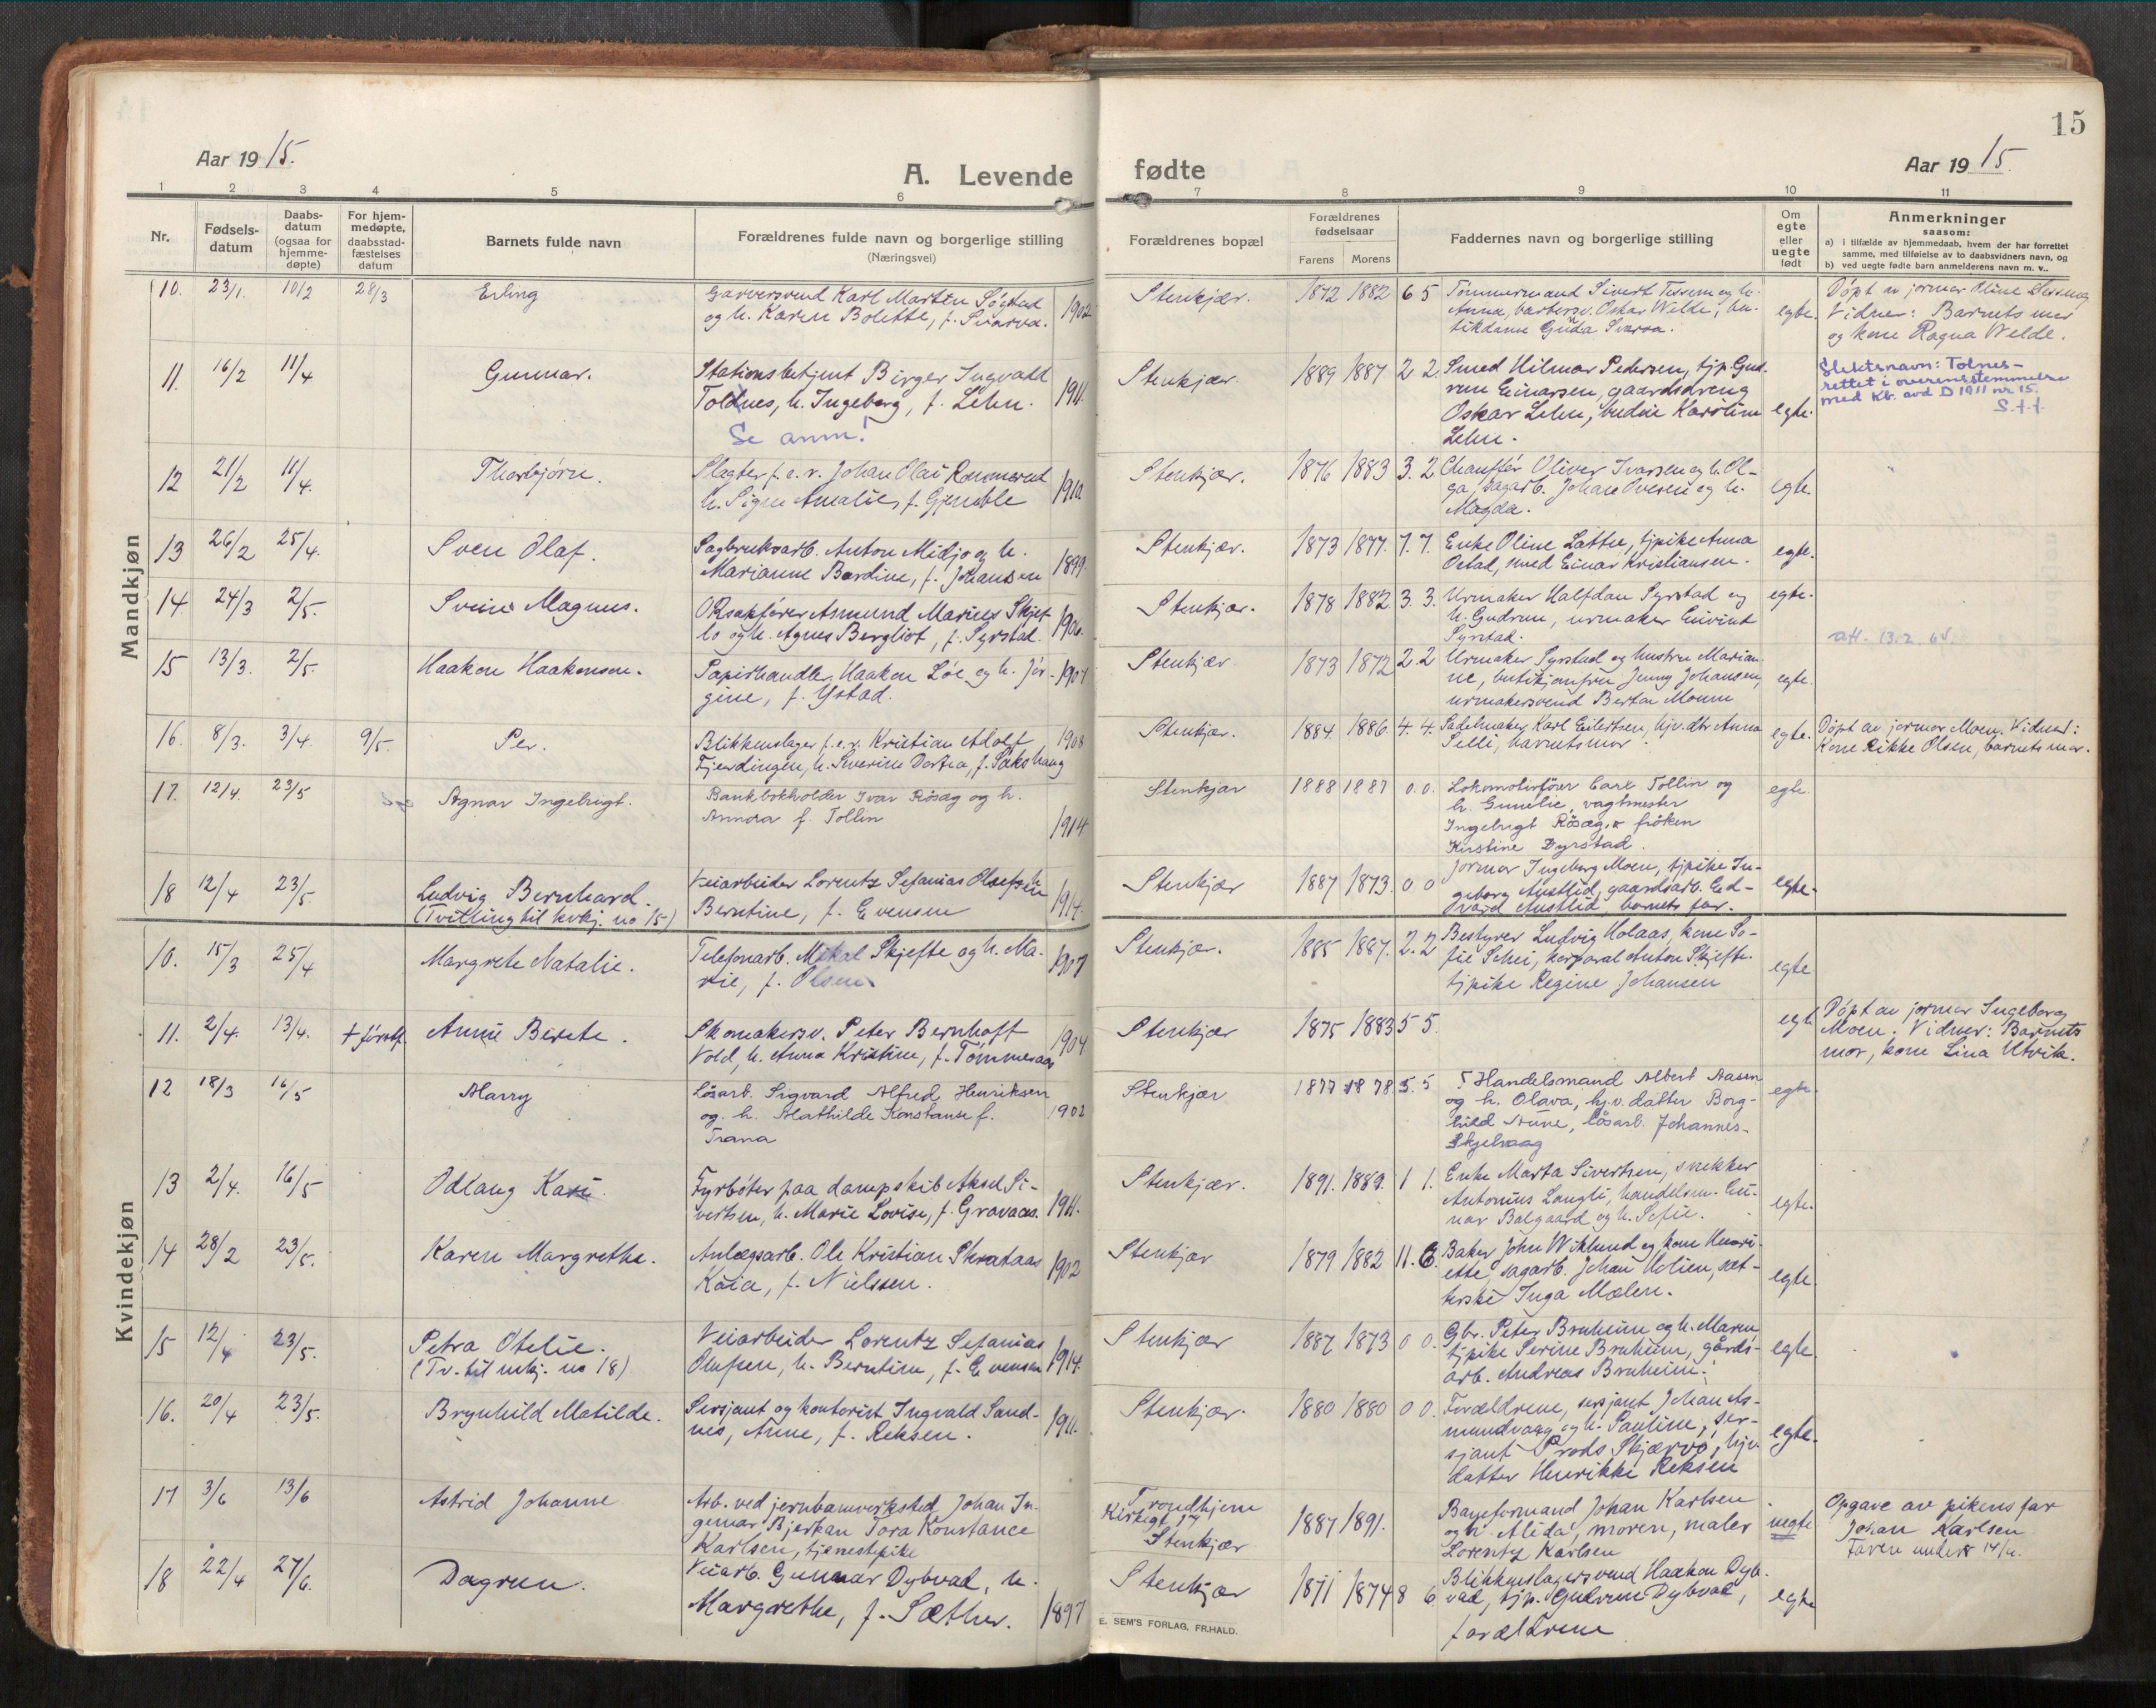 15
Aar 19 15.
A. Levende
fødte
Aar 19 15.
1 2 3 4 5 6 7 8 9 10 11
Nr.
Fødsels-
datum
Daabs-
datum
(ogsaa for
hjemme-
døpte)
For hjem-
medøpte,
daabsstad-
fæstelses
datum
Barnets fulde navn
Forældrenes fulde navn og borgerlige stilling
(Næringsvei)
Forældrenes bopæl
Forældrenes
fødselsaar
Farens Morens
Faddernes navn og borgerlige stilling
Om
egte
eller
uegte
født
Anmerkninger
saasom:
a) i tilfælde av hjemmedaab, hvem der har forrettet
samme, med tilføielse av to daabsvidners navn, og
b) ved uegte fødte barn anmelderens navn m. v..
Mandkjøn
10. 23/1. 10/2 28/3 Erling
Garversvend Karl Martin Søgstad
og h. Karen Bolette, f. Svarva. 1902.
Stenkjær. 1872 1882 6 5
Tømmermand Sivert Tessem og h.
Anna, barbersv. Oskar Welde, bu-
tikdame Gunda Svarva.
egte.
Døpt av jormor Oline Lessing
Vidner: Barnets mor
og kone Ragna Welde.
11. 16/2 11/4 Gunnar.
Stationsbetjent Birger Ingvald
Toldnes, h. Ingeborg, f. Lehn. 1911.
Se anm!
Stenkjær. 1889 1887 2 2.
Smed Hilmar Pedersen, tjp. Gud-
run Einarsen, gaardsdreng
Oskar Lehn, budeie Karoline
Lehn.
egte.
Slektsnavn: Tolnes-
rettet i overensstemmelse
med Kb. avd D 1911 nr 15.
S.f.f.
12 21/2 11/4. Thorbjørn.
Slagter f.e.r. Johan Olai
h. Signe Amalie, f. Gjemble 1910
Stenkjær. 1876 1883 3. 2
Chauffør Oliver Ivarsen og h. Ol-
ga, sagarb. Johan Ovesen og h.
Magda.
egte.
13 26/2 25/4. Sven Olaf.
Sagbruksarb. Anton Midjo og h.
Marianne Bardine, f. Johansen 1899.
Stenkjær. 1873 1877. 7. 7.
Enke Oline Lattee, tjpike Anna
Oelad, smed Einar Kristiansen.
egte.
14 24/3 2/5. Svein Magnus.
ORsakfører Asmund Marius Skjef-
lo og h. Agnes Bergliot, f. Syrstad. 1906.
Stenkjær. 1878 1882 3. 3.
Urmaker Halfdan Syrstad og
h. Gudrun, urmaker Enivint
Syrstad.
egte.
att. 13.2.65.
15 13/3. 2/5. Haakon Haakonson.
Papirhandler Haakon Løe og h. Jør-
gine, f. Ystad. 1907
Stenkjær 1873 1872 2. 2
Urmaker Syrstad og hustru Marian-
ne, butikjomfru Jenny Johansen,
urmakersvend Bertan Moum
egte.
16. 8/3. 3/4. 9/5. Per.
Blikkenslager f.e.r. Kristian Adolf
Fjerdingen, h. Severine Dortea, f. Sakshaug 1908
Stenkjær. 1884 1886. 4. 4.
Sadelmaker Karl Eilertsen, hjv. dtr. Anna
Selli, barnets mor.
egte.
Døpt av jormor Moen. Vidner:
Kone Rikke Olsen, barnets mor.
17. 12/4. 23/5 Agnar Ingebrigt.
Bankbokholder Ivar Røsæg og h.
Annora f. Tollin 1914
Stenkjær 1888 1887 0. 0.
Lokomotivfører Carl Tollin og
h. Emelie, vagtmester
Ingebrigt Røsæg, frøken
Kirstine Dyrstad.
egte.
18 12/4 23/5. Ludvig Bernhard.
(Tvilling til kvkj. no 15)
Veiarbeider Lorentz Sefanias Olufsen h.
Berntine, f. Evensen 1914.
Stenkjær 1887 1873. 0 0
Jormor Ingeborg Moen, tjpike In-
geborg Austlid, gaardsarb. Ed-
vard Austlid, barnets far.
egte.
Kvindekjøn
10. 15/3 25/4 Margrete Natalie.
Telefonarb. Mikal Skjefte og h. Ma-
rie, f. Olsen. 1907
Stenkjær. 1885 1887. 2. 2
Bestyrer Ludvig Holaas, kone So-
fie Schei, korporal Anton Skjefte.
tjpike Regine Johansen
egte
11. 2/4. 13/4. Anne Berete.
Skomakersv. Peter Bernhoft
Vold, h. Anna Kristine, f. Tømmeraas 1904
Stenkjær 1875 1883 5 5.
egte
Døpt av jormor Ingeborg
Moen. Vidner: Barnets
mor, kone Lina Utvik.
12 18/3 16/5 Harry
Løsarb. Sigvard Alfred Henriksen
og. h. Mathilde Konstanse f.
Trana 1902
Stenkjær 1877 1878. 5. 5
Handelsmand Albert Aasen
og h. Olava, hj.v. datter Borg-
hild Aune, løsarb. Johannes
Skjelvaag
egte.
13 2/4. 16/5 Odlaug Kari.
Fyrbøter paa dampskib Aksel Si-
vertsen, h. Marie Lovise, f. Gravaas. 1911.
Stenkjær. 1891. 1889. 1 1.
Enke Marta Sivertsen, snekker
Antonius Langli, handelsm. Ei-
nar Balgaard og h. Sefie.
egte.
14 28/2 23/5. Karen Margrethe.
Anlægsarb. Ole Kristian Skrataas
Kaia, f. Nielssen. 1902
Stenkjær 1879 1882 11. 6.
Baker John Wiklund og kone Henri-
ette, sagarb. Johan Holien, sæt-
terske Inga Mælen.
egte.
15 12/4 23/5. Petra Otelie.
(Tv. til mkj. no 18)
Veiarbeider Lorentz Sefanias
Olufsen, h. Berntine, f. Evensen 1914.
Stenkjær 1887 1873 0 0.
Gbr. Peter Bruheim og h. Maren,
tjpike Serine Bruheim, gårds-
arb. Andreas Bruheim.
egte.
16. 20/4 23/5. Brynhild Matilde.
Sersjant og kontorist Ingvald Sand-
nes, Anne, f. Reksen. 1911.
Stenkjær. 1880 1880 0 0.
Forældrene, sersjant Johan As-
mundvaag og h. Pauline, ser-
sjant Skjærvø, hjv.
datter Henrikke Reksen
egte.
17 3/6 13/6 Astrid Johanne
Arb. ved jernbaneverksted Johan In-
gemar Bjerkan Tora Konstance
Karlsen, tjenestepike
Trondhjem
Kirkegt 17
Stenkjær 1887 1891.
Baneformand Johan Karlsen
og h. Alida, moren, maler
Lorentz Karlsen
uegte
Opgave av pikens far
Johan Karlsen
faren underr 14/6.
18 22/4 27/6. Dagrun.
Veiarb. Gunnar Dybvad, h.
Margrethe, f. Sæther. 1897
Stenkjær 1871 1874 8 6.
Blikkenslagersvend Haakon Dyb-
vad, tjp. Gudrun Dybvad,
forældrene
egte
E. SEM'S FORLAG, FR.HALD.